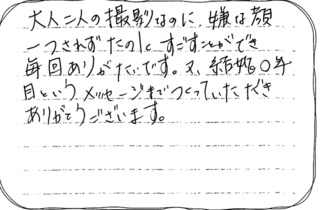 大人二人の撮影なのに、嫌な顔
一つされずたのしくすごすことができ
毎回ありがたいです。又、結婚〇年
目というメッセージまでつくっていただき
ありがとうございます。